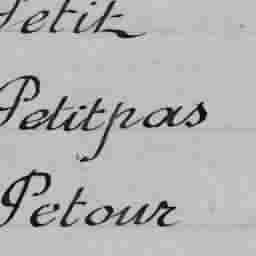 Petit
Petitpas
Petour